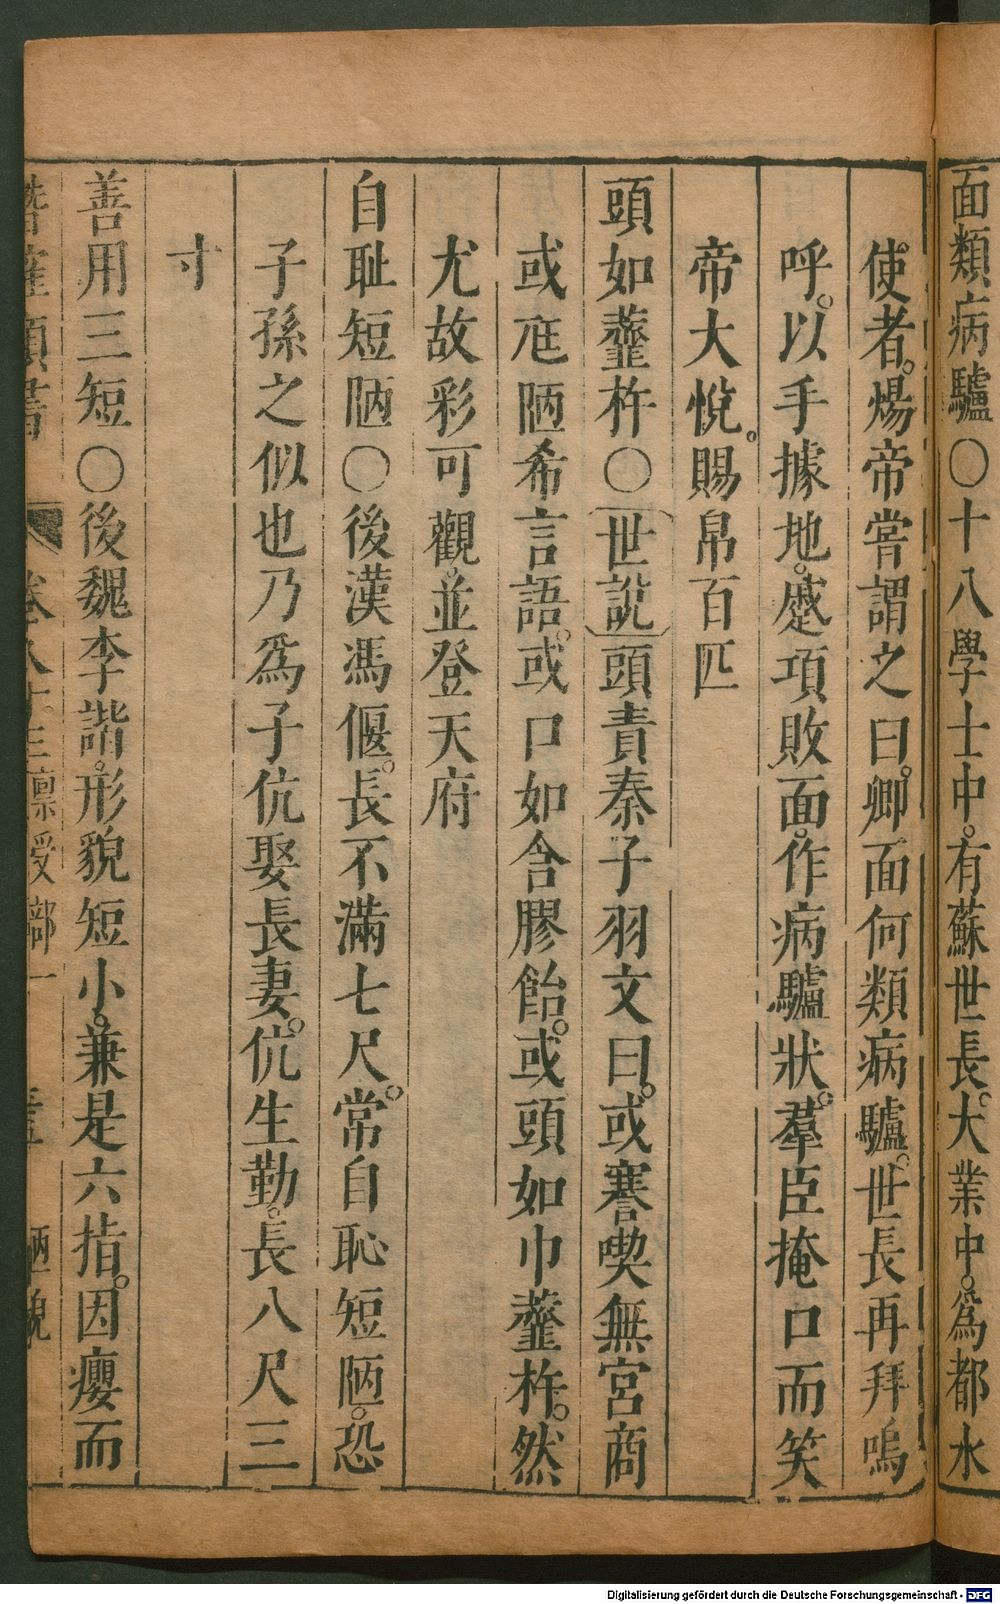 面類病驢〇十八學士中有蘇世長大業中爲都水
使者煬帝嘗謂之曰卿面何類病驢世長再拜嗚
呼以手據地蹙項敗面作病驢狀羣臣掩口而笑
帝大悅賜帛百匹
頭如虀杵〇世說頭責秦子羽文曰或謇喫無宮商
或尫陋希言語或口如含膠飴或頭如巾虀杵然
尤故彩可觀並登天府
自耻短陋〇後漢馮偃長不滿七尺常自恥短陋恐
子孫之似也乃爲子伉娶長妻伉生勤長八尺三
寸
善用三短〇後魏李諧形貌短小兼是六指因癭而
卷八十三 稟受部一 陋貌
Digitalisierung gefördert durch die Deutsche Forschungsgemeinschaft - DFG